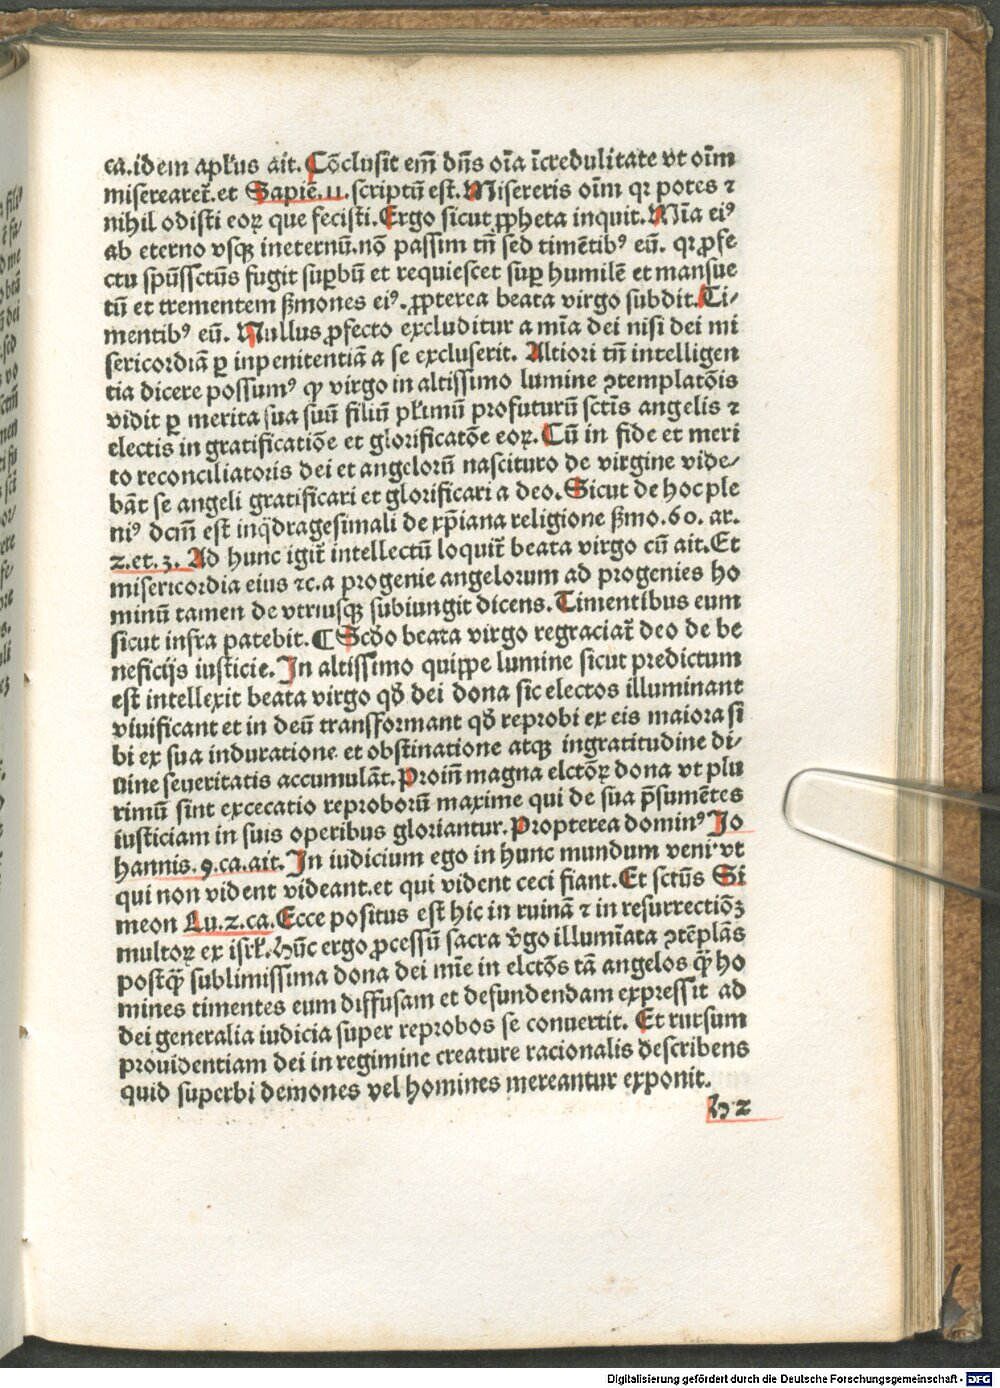 ca.idem apl'us ait. Cōclusit em̄ dn̄s oīa īcredulitate vt oīm
misereareꝛ̄. et Sapiē.11.scriptū est. Misereris oīm qꝛ potes ⁊
nihil odisti eoꝝ que fecisti. Ergo sicut ꝓpheta inquit. Mīa eiꝰ
ab eterno vsqꝫ ineternū.nō passim tn̄ sed timētibꝰ eū. qꝛ ꝓfe
ctu spūssctūs fugit suꝑbū et requiescet suꝑ humilē et mansue
tū et trementem ẞmones eiꝰ. ꝓpterea beata virgo subdit. Ti⸗
mentibꝰ eū. Nullus ꝓfecto excluditur a mīa dei nisi dei mi
sericordiā ꝑ inpenitentiā a se excluserit. Altiori tn̄ intelligen
tia dicere possumꝰ ꝙ virgo in altissimo lumine ꝯtemplatōis
vidit ꝑ merita sua suū filiū pl'imū profuturū sctīs angelis ⁊
electis in gratificatiōe et glorificatōe eoꝝ. Cū in fide et meri
to reconciliatoris dei et angelorū nascituro de virgine vide⸗
bāt se angeli gratificari et glorificari a deo. Sicut de hoc ple
niꝰ dcm̄ est inq̄dragesimali de xp̄iana religione ẞmo.60. ar.
2.et.3. Ad hunc igiꝛ̄ intellectū loquiꝛ̄ beata virgo cū ait. Et
misericordia eius ⁊c.a progenie angelorum ad progenies ho
minū tamen de vtriusqꝫ subiungit dicens. Timentibus eum
sicut infra patebit. ¶ Scd̄o beata virgo regraciaꝛ̄ deo de be
neficijs iusticie. In altissimo quippe lumine sicut predictum
est intellexit beata virgo qđ dei dona sic electos illuminant
viuificant et in deū transformant qđ reprobi ex eis maiora si
bi ex sua induratione et obstinatione atqꝫ ingratitudine di⸗
uine seueritatis accumulāt. Proin̄ magna elctōꝝ dona vt plu
rimū sint excecatio reproborū maxime qui de sua p̄sumētes
iusticiam in suis operibus gloriantur. Propterea dominꝰ Jo
hannis.9.ca.ait. In iudicium ego in hunc mundum veni vt
qui non vident videant.et qui vident ceci fiant. Et sctūs Si
meon Lu.2.ca. Ecce positus est hic in ruinā ⁊ in resurrectiōꝫ
multoꝝ ex isrl'. Hūc ergo ꝓcessū sacra v̄go illumīata ꝯtēplās
postq̄ sublimissima dona dei mīe in elctōs tā angelos q̄ ho
mines timentes eum diffusam et defundendam expressit ad
dei generalia iudicia super reprobos se conuertit. Et rursum
prouidentiam dei in regimine creature racionalis describens
quid superbi demones vel homines mereantur exponit.
h 2
Digitalisierung gefördert durch die Deutsche Forschungsgemeinschaft - DFG